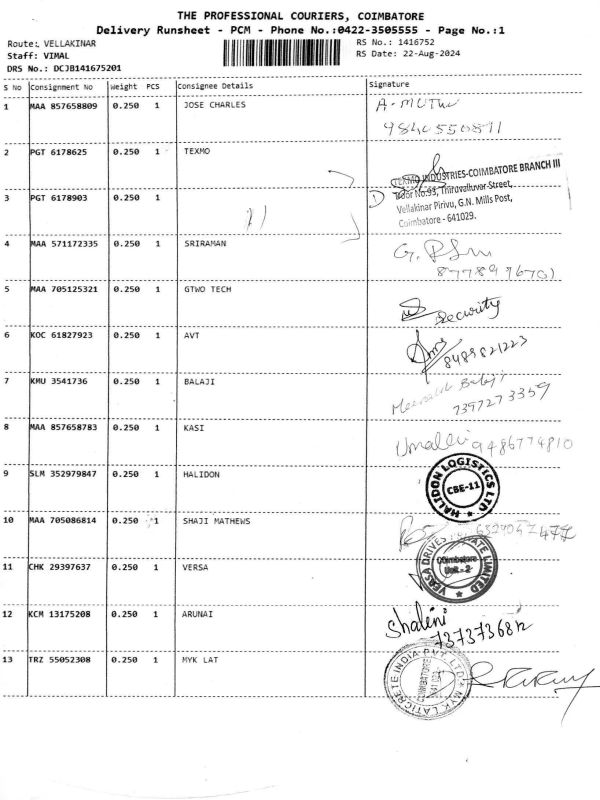 THE PROFESSIONAL COURIERS, COIMBATORE
Delivery Runsheet - PCM - Phone No.:0422-3505555 - Page No.:1
Route: VELLAKINAR
RS No.: 1416752
Staff: VIMAL
RS Date: 22-Aug-2024
DRS No.: DCJB141675201
S No Consignment No Weight PCS Consignee Details Signature
1 MAA 857658809 0.250 1 JOSE CHARLES A. MUTHU
2 PGT 6178625 0.250 1 TEXMO
TEXMO INDUSTRIES-COIMBATORE BRANCH III
Door No.93, Thiruvalluvar Street,
3 PGT 6178903 0.250 1
Vellakinar Pirivu, G.N. Mills Post,
Coimbatore - 641029.
4 MAA 571172335 0.250 1 SRIRAMAN
5 MAA 705125321 0.250 1 GTWO TECH
Security
6 KOC 61827923 0.250 1 AVT
8489821223
7 KMU 3541736 0.250 1 BALAJI
Balaji
7397273359
8 MAA 857658783 0.250 1 KASI
9486774810
9 SLM 352979847 0.250 1 HALIDON
HALIDON LOGISTICS LTD
CBE-11
10 MAA 705086814 0.250 1 SHAJI MATHEWS
11 CHK 29397637 0.250 1 VERSA
VERSA DRIVES PRIVATE LIMITED
Coimbatore
Unit - 2
12 KCM 13175208 0.250 1 ARUNAI
Shalini
13 TRZ 55052308 0.250 1 MYK LAT
MYK LATICRETE INDIA PVT. LTD.
COIMBATORE